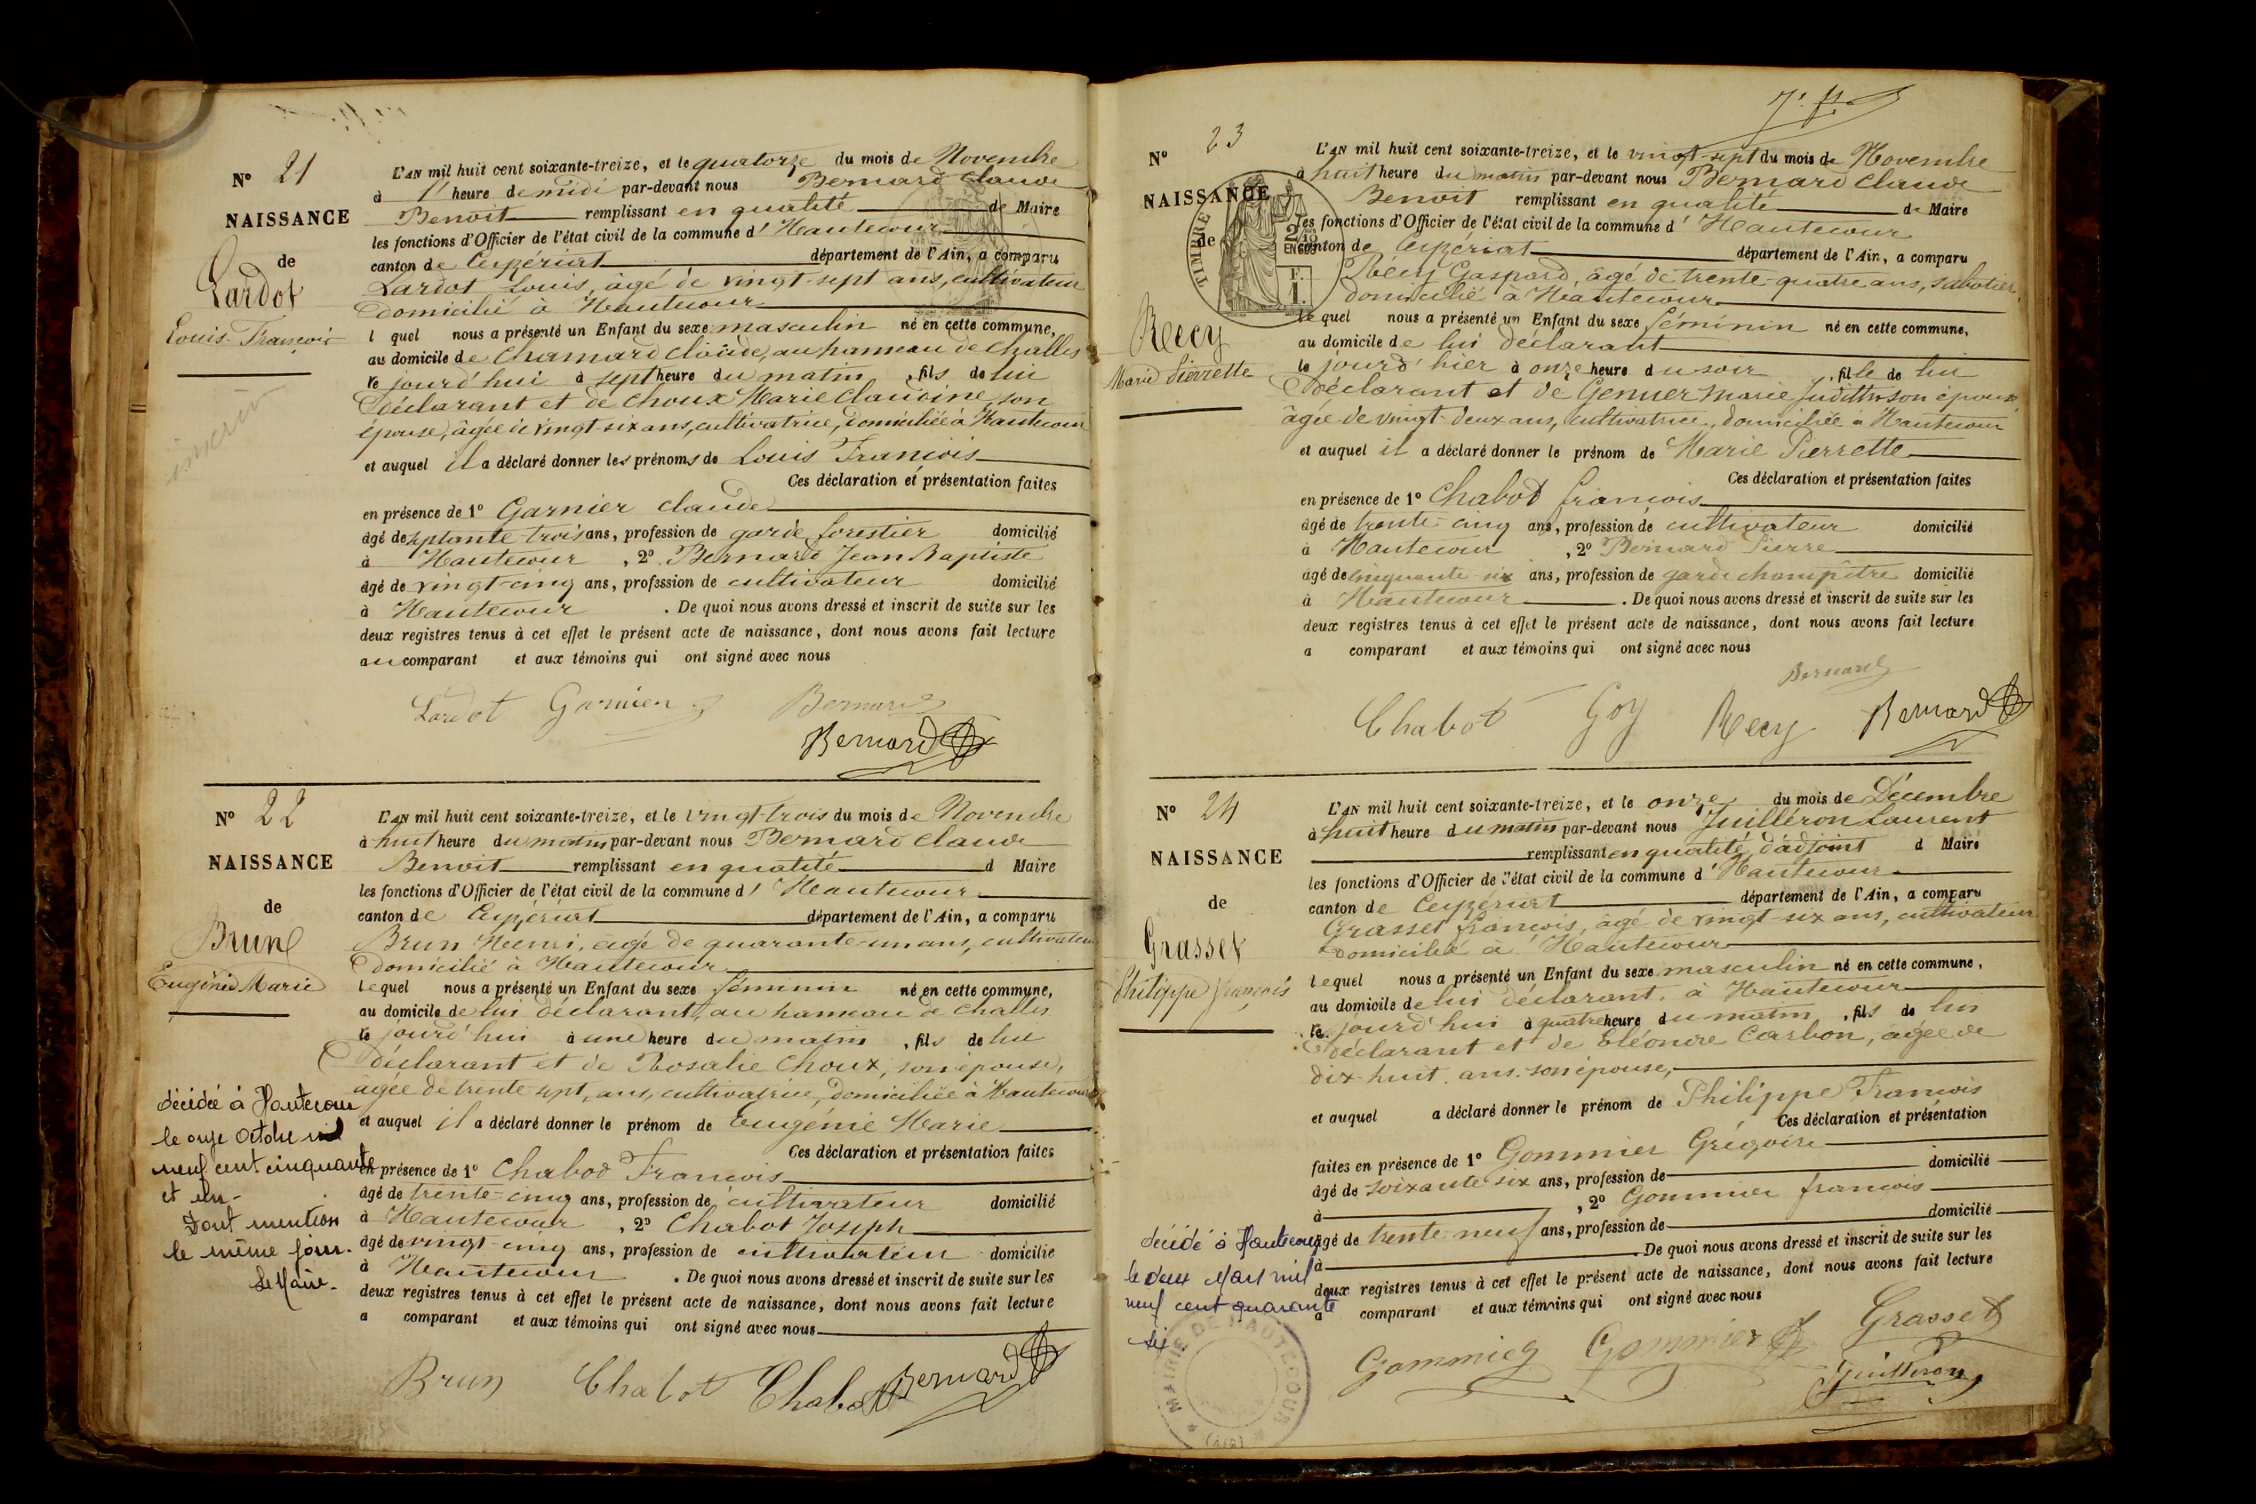 N° 21
NAISSANCE
de
Lardot
Louis François
L'AN mil huit cent soixante-treize, et le quatorze du mois de Novembre
à 1 heure de midi par-devant nous Bernard Claude
Benoit remplissant en qualité de Maire
les fonctions d'Officier de l'état civil de la commune d' Hautecour
canton de Ceyzériat département de l'Ain, a comparu
Lardot Louis, âgé de vingt-sept ans, cultivateur
domicilié à Hautecour
l quel nous a présenté un Enfant du sexe masculin né en cette commune,
au domicile de Chamard Claude, au hameau de Challes
le jourd'hui à sept heure du matin , fils de lui
déclarant et de Choux Marie Claudine, son
épouse, âgée de vingt-six ans, cultivatrice, domiciliée à Hautecour
et auquel il a déclaré donner les prénoms de Louis François
Ces déclaration et présentation faites
en présence de 1° Garnier Claude
âgé de septante-trois ans, profession de garde forestier domicilié
à Hautecour , 2° Bernard Jean Baptiste
âgé de vingt-cinq ans, profession de cultivateur domicilié
à Hautecour . De quoi nous avons dressé et inscrit de suite sur les
deux registres tenus à cet effet le présent acte de naissance, dont nous avons fait lecture
au comparant et aux témoins qui ont signé avec nous
Lardot Garnier Bernard
Bernard
N° 22
NAISSANCE
de
Brun
Eugénie Marie
L'AN mil huit cent soixante-treize, et le vingt-trois du mois de Novembre
à huit heure du matin par-devant nous Bernard Claude
Benoit remplissant en qualité d Maire
les fonctions d'Officier de l'état civil de la commune d' Hautecour
canton de Ceyzériat département de l'Ain, a comparu
Brun Henri, âgé de quarante-un ans, cultivateur
domicilié à Hautecour
lequel nous a présenté un Enfant du sexe féminin né en cette commune,
au domicile de lui déclarant, au hameau de Challes
le jourd'hui à une heure du matin , fils de lui
déclarant et de Rosalie Choux, son épouse,
âgée de trente sept, ans, cultivatrice, domiciliée à Hautecour
et auquel il a déclaré donner le prénom de Eugénie Marie
Ces déclaration et présentation faites
en présence de 1° Chabod François
âgé de trente-cinq ans, profession de cultivateur domicilié
à Hautecour , 2° Chabot Joseph
âgé de vingt-cinq ans, profession de cultivateur domicilié
à Hautecour . De quoi nous avons dressé et inscrit de suite sur les
deux registres tenus à cet effet le présent acte de naissance, dont nous avons fait lecture
a comparant et aux témoins qui ont signé avec nous
Brun Chabot Chabot Bernard
décédée à Hautecour
le onze Octobre mil
neuf cent cinquante
et un-
Dont mention
le même jour.
Le Maire.
N° 23
NAISSANCE
de
Recy
Marie Pierrette
TIMBRE
2/10
EN SUS
F.
1.
L'AN mil huit cent soixante-treize, et le vingt-sept du mois de Novembre
à huit heure du matin par-devant nous Bernard Claude
Benoit remplissant en qualité de Maire
les fonctions d'Officier de l'état civil de la commune d' Hautecour
canton de Ceyzériat département de l'Ain, a comparu
Récy Gaspard, âgé de trente-quatre ans, sabotier,
domicilié à Hautecour
lequel nous a présenté un Enfant du sexe féminin né en cette commune,
au domicile de lui déclarant
le jourd'hier à onze heure du soir , fille de lui
déclarant et de Genuer Marie Judith son épouse
âgée de vingt-deux ans, cultivatrice, domiciliée à Hautecour
et auquel il a déclaré donner le prénom de Marie Pierrette
Ces déclaration et présentation faites
en présence de 1° Chabod François
âgé de trente-cinq ans, profession de cultivateur domicilié
à Hautecour , 2° Bernard Pierre
âgé de cinquante-six ans, profession de garde champêtre domicilié
à Hautecour . De quoi nous avons dressé et inscrit de suite sur les
deux registres tenus à cet effet le présent acte de naissance, dont nous avons fait lecture
a comparant et aux témoins qui ont signé avec nous
Bernard
Chabot Goy Recy Bernard
N° 24
NAISSANCE
de
Grasset
Philippe François
L'AN mil huit cent soixante-treize, et le onze du mois de Décembre
à huit heure du matin par-devant nous Juilléron Laurent
remplissant en qualité d'adjoint d Maire
les fonctions d'Officier de l'état civil de la commune d' Hautecour
canton de Ceyzériat département de l'Ain, a comparu
Grasset François, âgé de vingt-six ans, cultivateur
domicilié à Hautecour
lequel nous a présenté un Enfant du sexe masculin né en cette commune,
au domicile de lui déclarant, à Hautecour
le jourd'hui à quatre heure du matin , fils de lui
déclarant et de Eléonore Carbon, âgée de
dix-huit ans. son épouse,
et auquel a déclaré donner le prénom de Philippe François
Ces déclaration et présentation
faites en présence de 1° Gommier Grégoire
âgé de soixante six ans, profession de domicilié
à , 2° Gommier François
âgé de trente-neuf ans, profession de domicilié
à . De quoi nous avons dressé et inscrit de suite sur les
deux registres tenus à cet effet le présent acte de naissance, dont nous avons fait lecture
a comparant et aux témoins qui ont signé avec nous
Gommier Gommier Grasset
Juilléron
décédé à Hautecour
le deux Mars mil
neuf cent quarante
six
MAIRIE DE HAUTECOUR
(AIN)